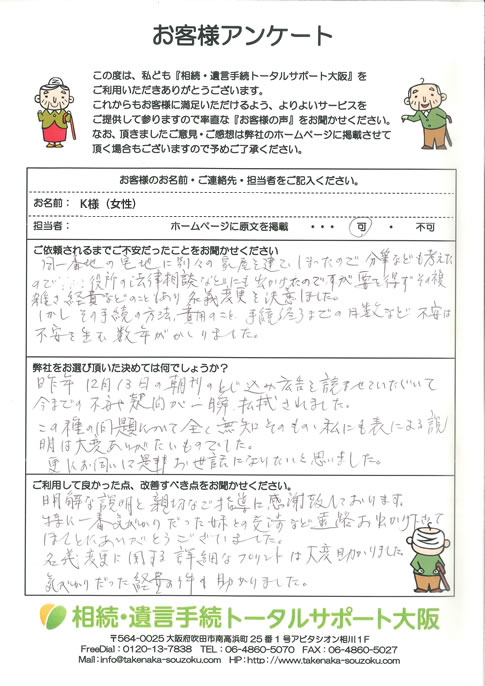 お客様アンケート
この度は、私ども『相続・遺言手続トータルサポート大阪』を
ご利用いただきありがとうございます。
これからもお客様に満足いただけるよう、よりよいサービスを
ご提供して参りますので率直な『お客様の声』をお聞かせください。
なお、頂きましたご意見・ご感想は弊社のホームページに掲載させて
頂く場合もございますので予めご了承ください。
お客様のお名前・ご連絡先・担当者をご記入ください。
お名前： K様（女性）
担当者： ホームページに原文を掲載 ・・・ 可 ・ 不可
ご依頼されるまでご不安だったことをお聞かせください
同一番地の宅地に別々の家屋を建てましたので 分筆なども考えた
ので 役所の法律相談などにも出かけたのですが 要を得ず その複
雑さ、経費などのこともあり 名義変更を決意しました。
しかし その手続の方法、費用のこと、手続終了までの月数など 不安は
不安を生む 数年がかりました。
弊社をお選び頂いた決めては何でしょうか？
昨年12月13日の朝刊のとじ込み広告を読ませていただいて
今までの不安や疑問が一瞬 払拭されました。
この種の問題について全く無知そのものの私にも表による説
明は大変ありがたいものでした。
更にお伺いして是非お世話になりたいと思いました。
ご利用して良かった点、改善すべき点をお聞かせください。
明解な説明と親切なご指導に感謝致しております。
特に一番気がかりだった妹との交渉など お出かけ下さって
ほんとにありがとうございました。
名義変更に関する詳細なプリントは大変助かりました。
気がかりだった経費の件も助かりました。
相続・遺言手続トータルサポート大阪
〒564-0025 大阪府吹田市南高浜町25番1号アピタシオン相川1F
FreeDial：0120-13-7838 TEL：06-4860-5070 FAX：06-4860-5027
Mail：info@takenaka-souzoku.com HP：http://www.takenaka-souzoku.com/